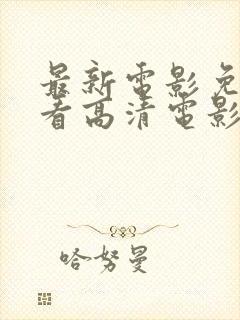 最新電影免
看高清電影
哈努曼